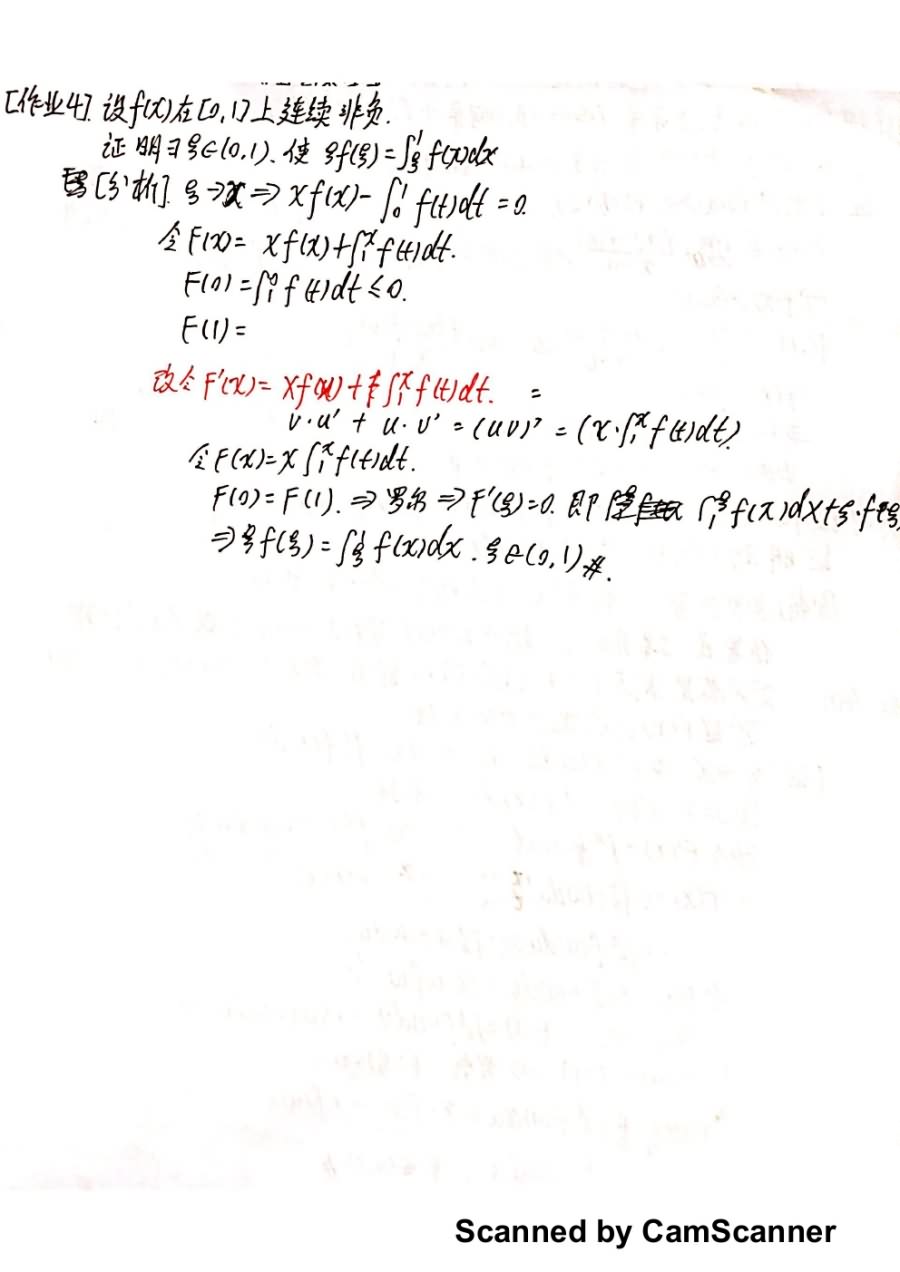 [作业4]. 设f(x)在[0,1]上连续非负.
证明∃ξ∈(0,1). 使 ξf(ξ)=∫_ξ^1 f(x)dx
[分析]. ξ→x ⇒ xf(x)-∫_0^1 f(t)dt=0.
令F(x)= xf(x)+∫_1^x f(t)dt.
F(0)=∫_1^0 f(t)dt≤0.
F(1)=
改令F'(x)= xf(x)+∫_1^x f(t)dt. =
v·u' + u·v' = (uv)' = (x·∫_1^x f(t)dt)
令F(x)=x∫_1^x f(t)dt.
F(0)=F(1). ⇒ 罗尔 ⇒ F'(ξ)=0. 即 ∫_1^ξ f(x)dx+ξ·f(ξ)
⇒ξf(ξ)=∫_ξ^1 f(x)dx. ξ∈(0,1) #.
Scanned by CamScanner